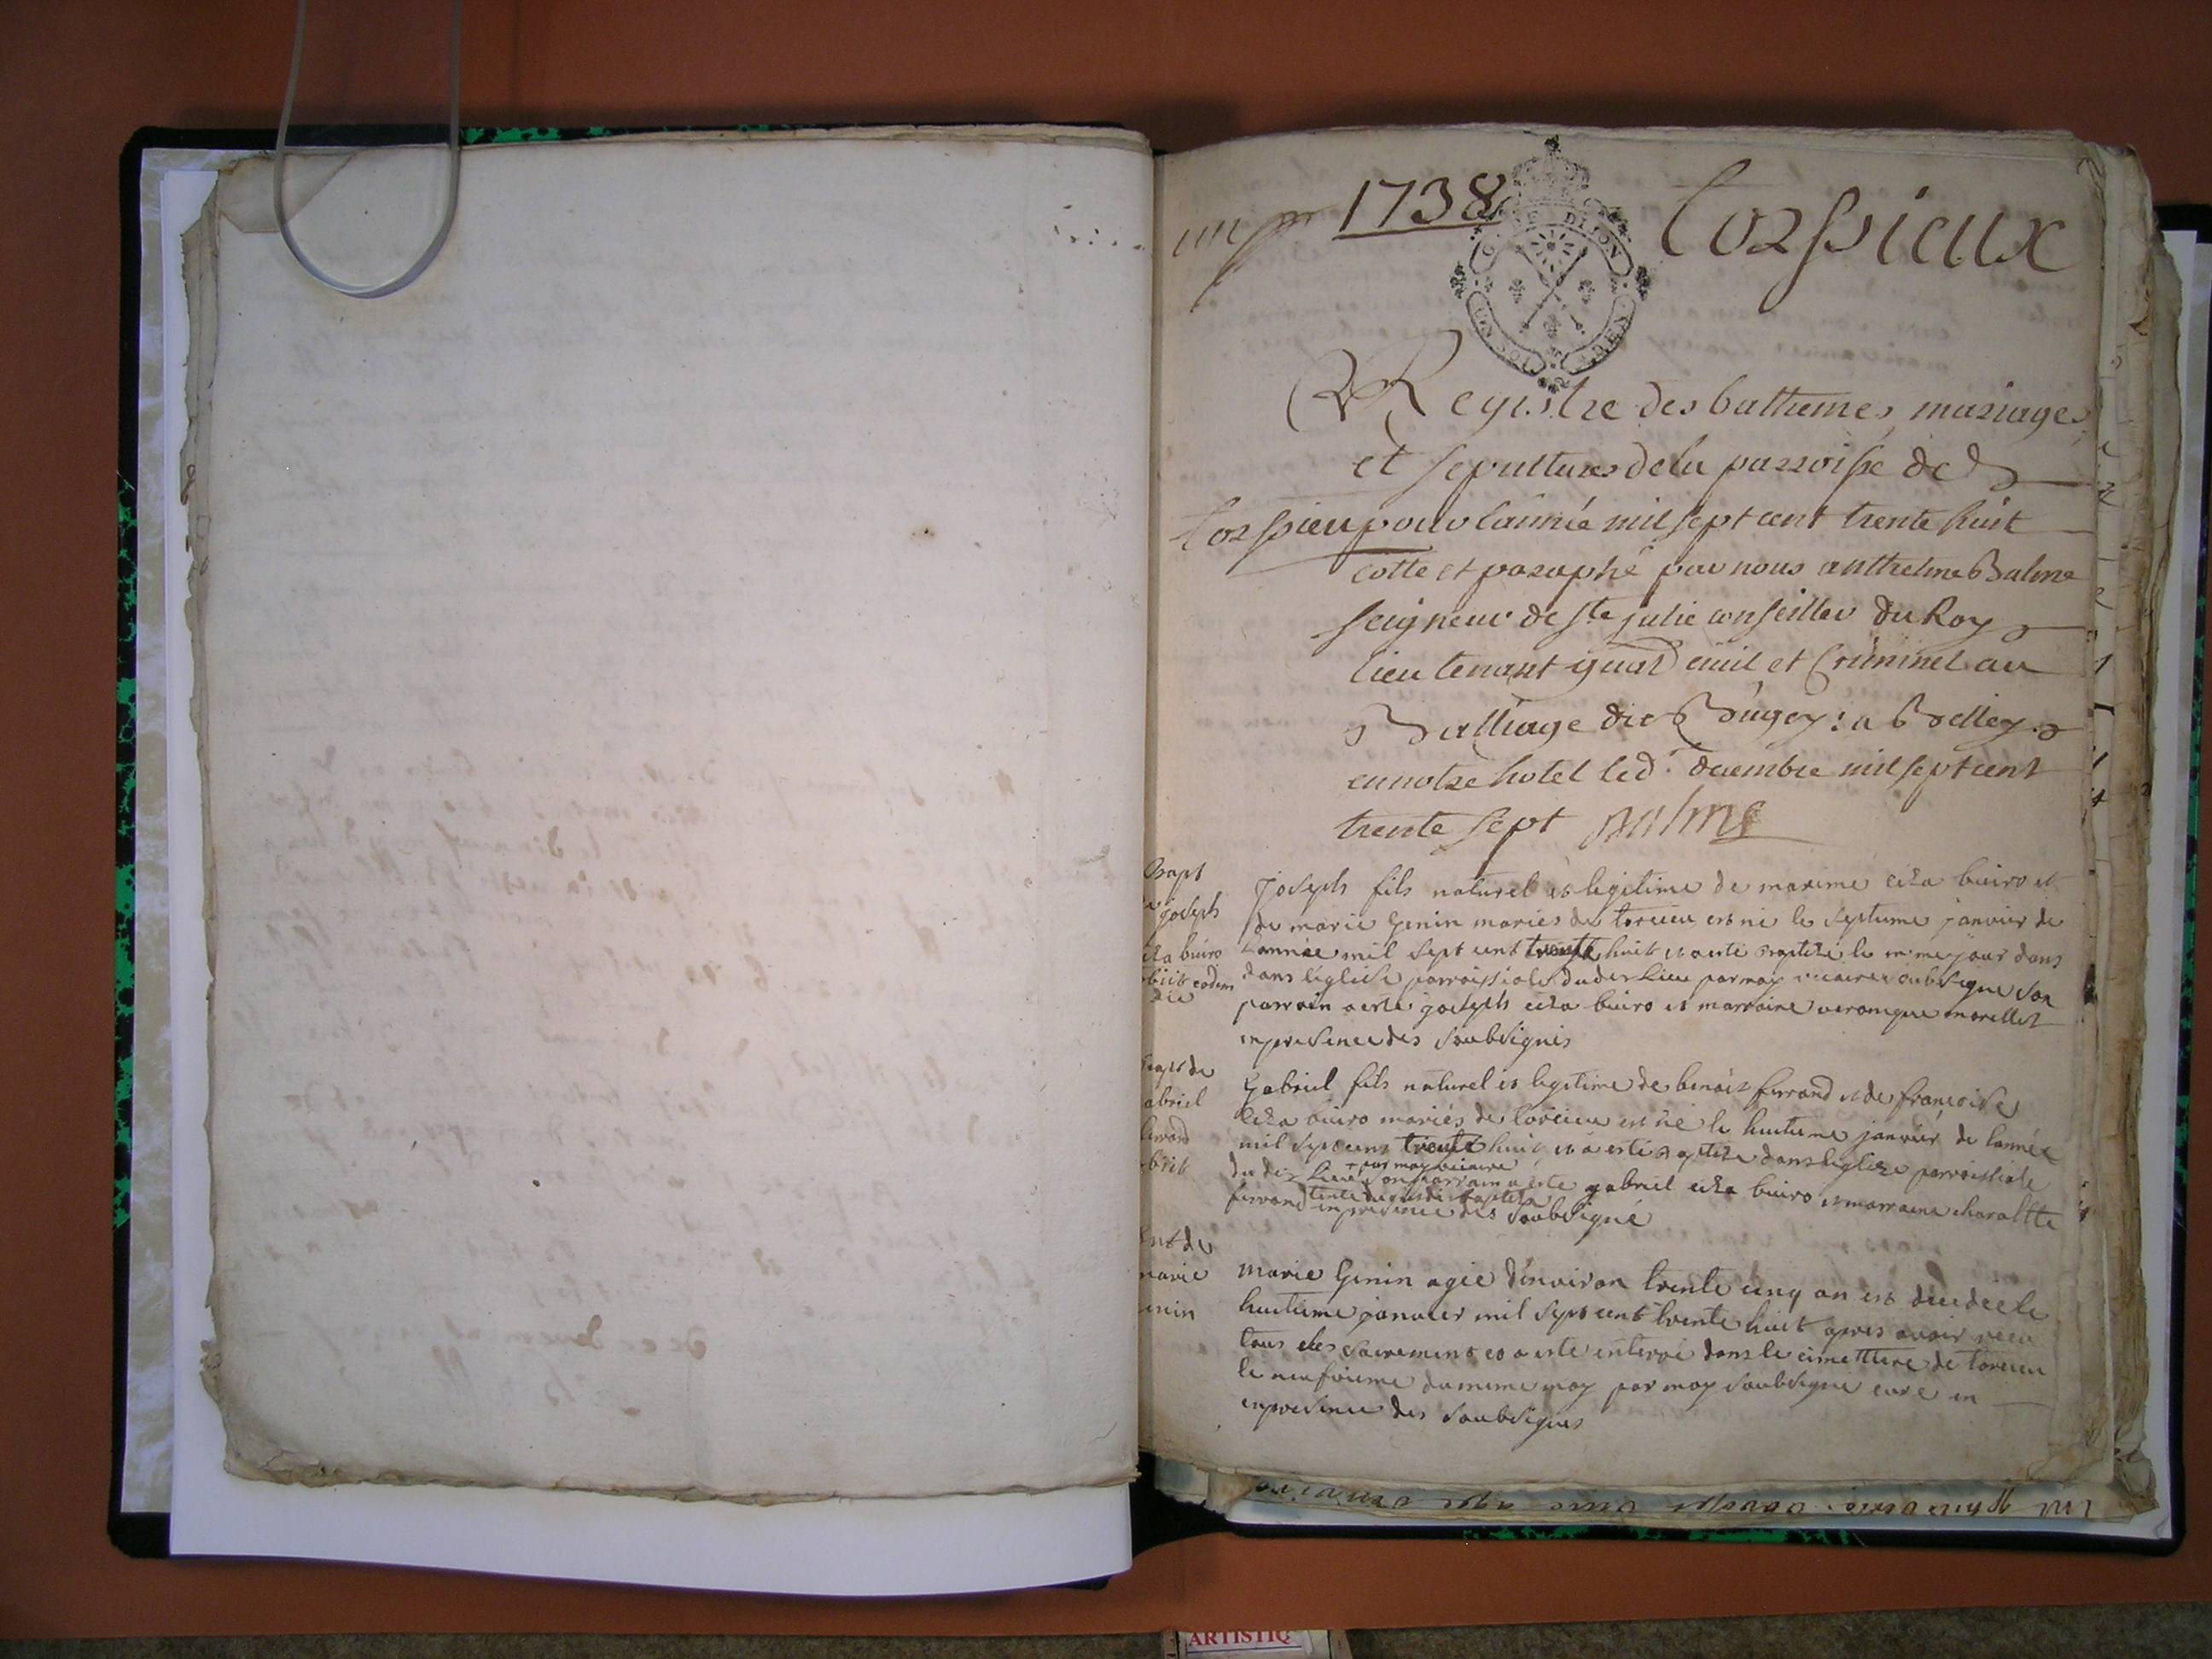 1738
Torssieux
DIJON
UN SOL
Registre des battemes, mariages
et sepultures de la parroisse de
Torssieu pour l'année mil sept cent trente huit
cotte et paraphé par nous anthelme Balme
seigneur de Ste julie conseiller du Roy
lieutenant gnal civil et Criminel au
Balliage de Bugey : a Belley
en notre hotel le d. decembre mil sept cent
trente sept Balme
Bapt
joseph
obiit eodem
die
joseph fils naturel et legitime de maxime buiro et
de marie Genin mariés de torcieu est né le septieme janvier de
l'année mil sept cent trente huit et a esté Baptizé le mesme jour dans
dans leglise parroissiale dudit lieu par moy vicaire soubsigne son
parrain a esté joseph buiro et marraine veronique morellet
en presence des soubsignés
Bapt de
abriel
ferrand
obiit
Gabriel fils naturel et legitime de benoit ferrand et de francoise
buiro mariés de torcieu est né le huitieme janvier de l'année
mil sept cens trente huit et a esté Baptizé dans leglise parroissiale
+ par moy vicaire
dudit lieu son parrain a esté gabriel buiro et marraine charlotte
ferrand en presence des soubsigné
Ent de
marie
enin
marie Genin agée d'environ trente cinq an est decedee le
huitieme janvier mil sept cent trente huit apres avoir receu
tous les sacremens et a esté enterré dans le cimettiere de torcieu
le neufvieme du meme moy par moy soubsigne curé en
en presence des soubsignes
ARTISTIQ